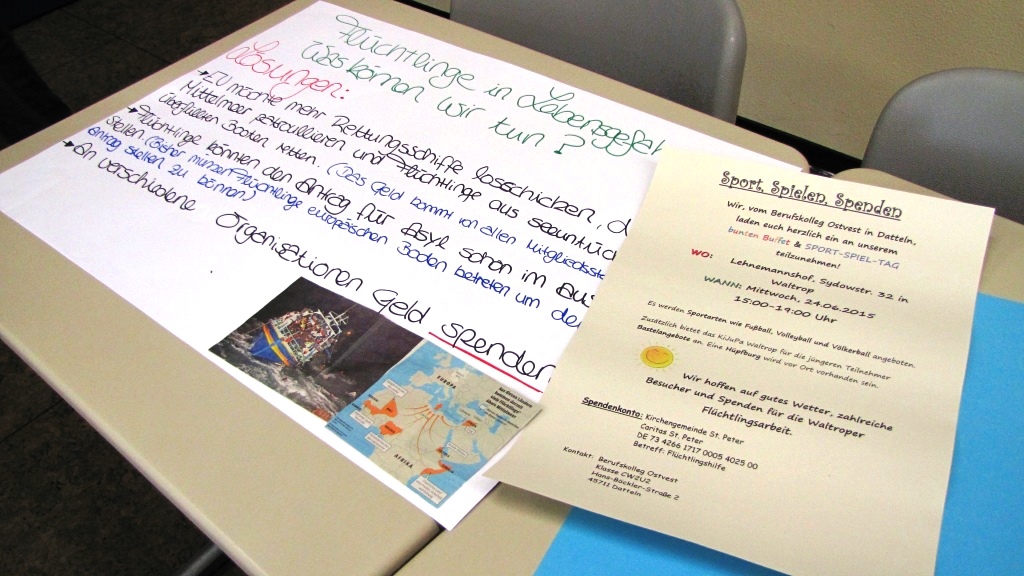 Flüchtlinge in Lebensgefah
Was können wir tun?
Lösungen:
→ EU möchte mehr Rettungsschiffe losschicken, d
Mittelmeer patroullieren und Flüchtlinge aus seeuntüch
überfüllten Booten retten. (Das Geld kommt von allen Mitgliedsste
→ Flüchtlinge könnten den Antrag für Asyl schon im Aus
stellen (Bisher müssen Flüchtlinge europäischen Boden betreten um den
Antrag stellen zu können)
→ An verschiedene Organisationen Geld spenden
EUROPA
AFRIKA
Sport, Spielen, Spenden
Wir, vom Berufskolleg Ostvest in Datteln,
laden euch herzlich ein an unserem
bunten Buffet & SPORT-SPIEL-TAG
teilzunehmen!
WO: Lehnemannshof, Sydowstr. 32 in
Waltrop
WANN: Mittwoch, 24.06.2015
15:00-19:00 Uhr
Es werden Sportarten wie Fußball, Volleyball und Völkerball angeboten.
Zusätzlich bietet das KiJuPa Waltrop für die jüngeren Teilnehmer
Bastelangebote an. Eine Hüpfburg wird vor Ort vorhanden sein.
Wir hoffen auf gutes Wetter, zahlreiche
Besucher und Spenden für die Waltroper
Flüchtlingsarbeit.
Spendenkonto: Kirchengemeinde St. Peter
Caritas St. Peter
DE 73 4266 1717 0005 4025 00
Betreff: Flüchtlingshilfe
Kontakt: Berufskolleg Ostvest
Klasse CW2U2
Hans-Böckler-Straße 2
45711 Datteln